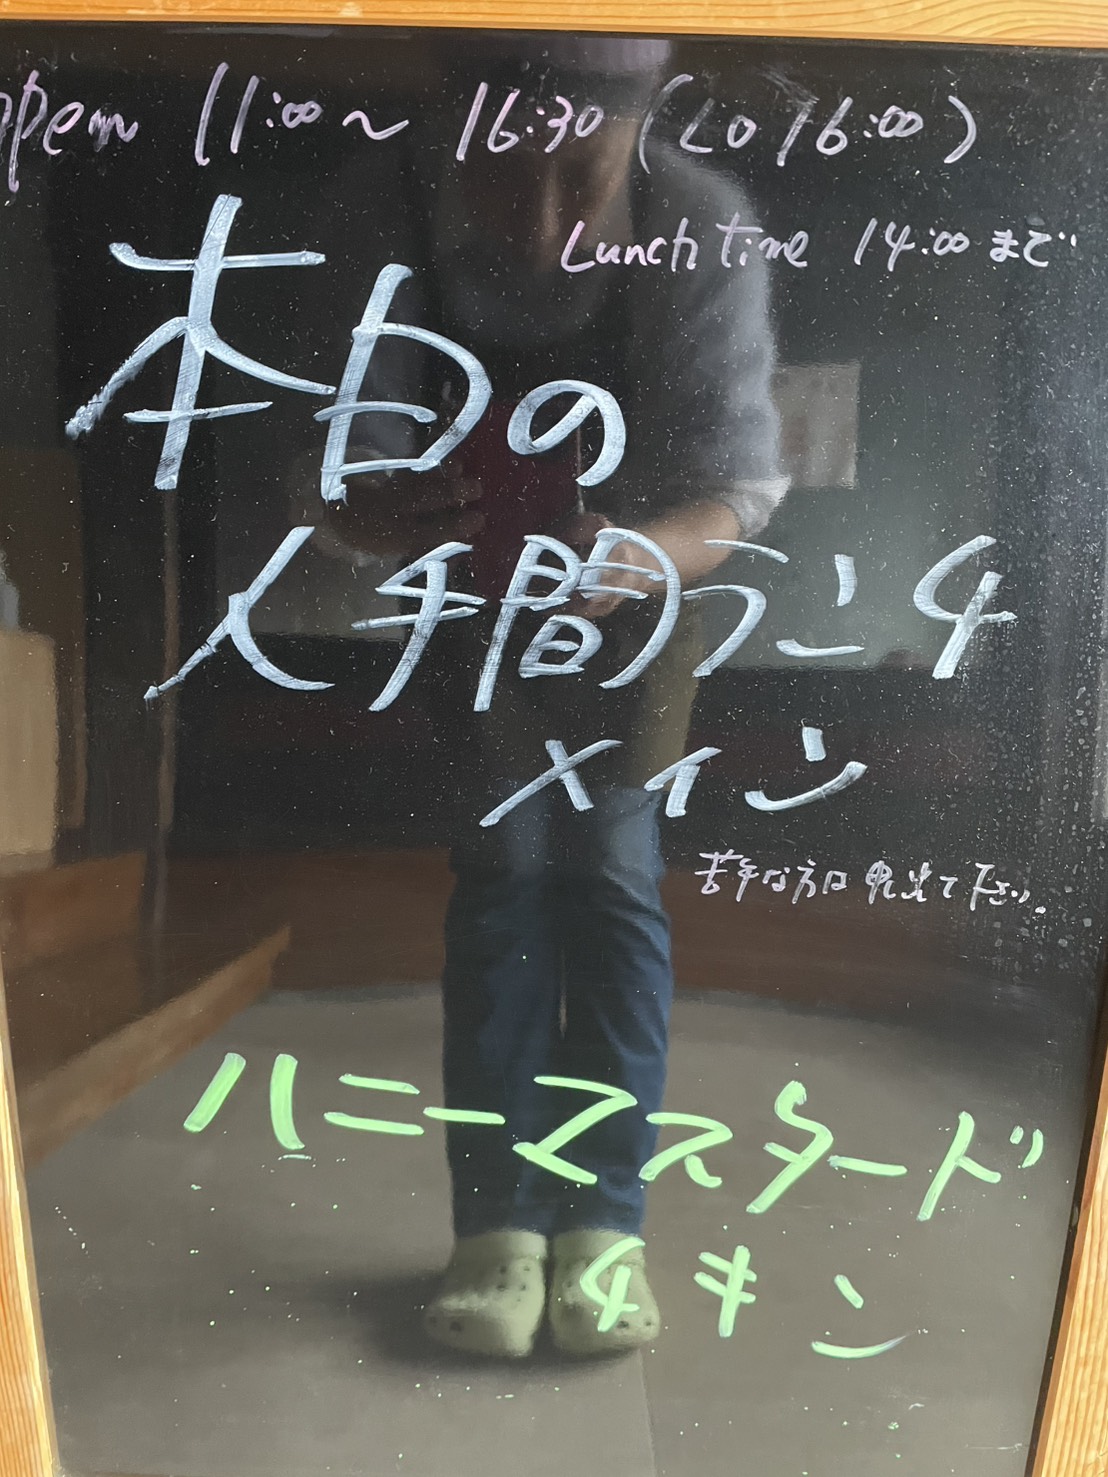 open 11:00～16:30 (LO 16:00)
Lunch time 14:00まで
本日の
人手間ランチ
メイン
苦手な方は申出て下さい。
ハニーマスタード
チキン